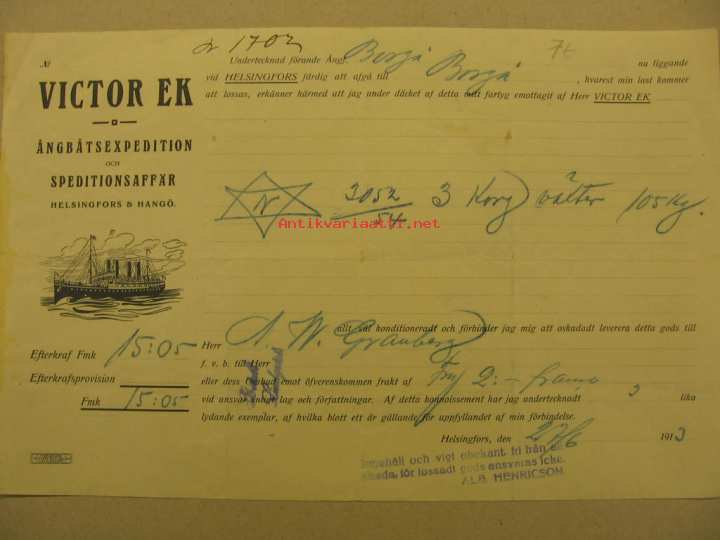 Nr 1702
No
VICTOR EK
ÅNGBÅTSEXPEDITION
OCH
SPEDITIONSAFFÄR
HELSINGFORS & HANGÖ.
Efterkraf Fmk 15:05
Efterkrafsprovision
Fmk 15:05
Undertecknad förande Ång. Borgå nu liggande
vid HELSINGFORS färdig att afgå till Borgå, hvarest min last kommer
att lossas, erkänner härmed att jag under däcket af detta mitt fartyg emottagit af Herr VICTOR EK
N 3052/54 3 Korg växter 105 Kg.
Antikvariaatti.net
allt väl konditioneradt och förbinder jag mig att oskadadt leverera detta gods till
Herr A. W. Granberg
f. v. b. till Herr
eller dess Ombud emot öfverenskommen frakt af Fmk 2:- franco
vid ansvar enligt lag och författningar. Af detta konnoissement har jag undertecknadt 3 lika
lydande exemplar, af hvilka blott ett är gällande för uppfyllandet af min förbindelse.
Helsingfors, den 27/6 1913
Innehåll och vigt obekant, fri från
skada, för lossadt gods ansvaras icke.
ALB. HENRICSON.